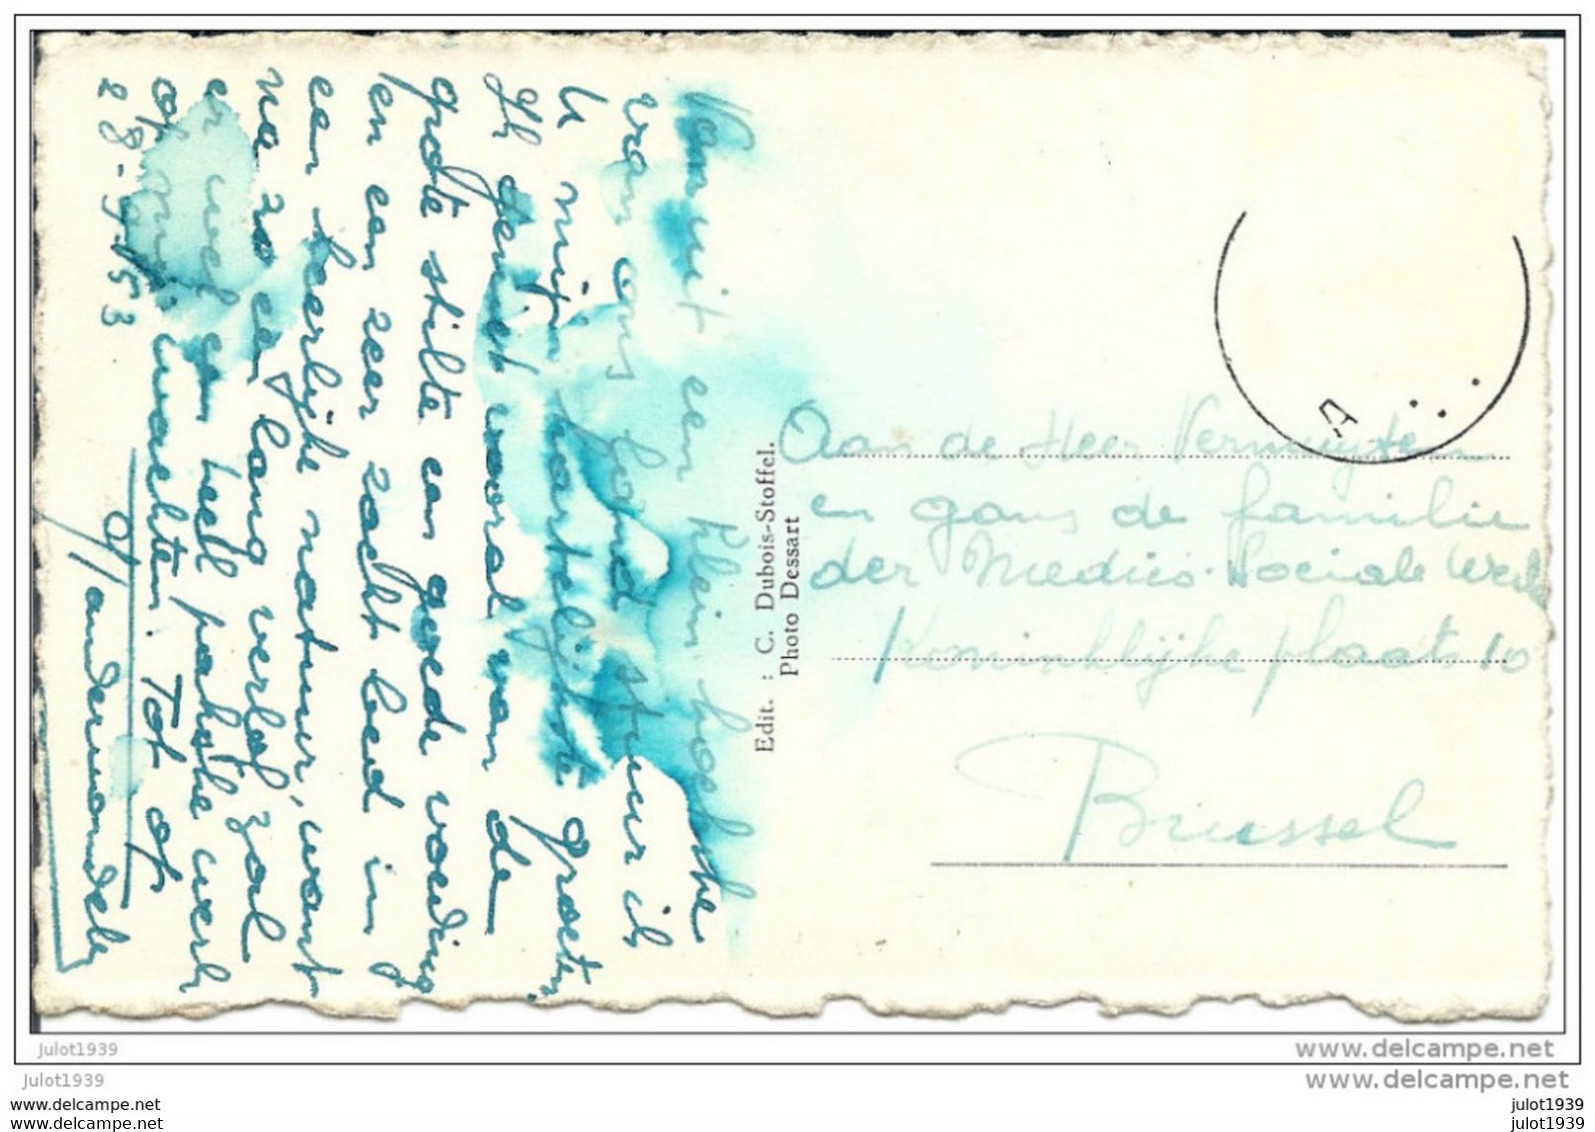 Vanuit een klein hoekje
van ons land stuur ik
U mijn hartelijkste groeten
Ik geniet vooral van de
grote stilte een goede voeding
en een zeer zacht bed in
een heerlijke natuur, want
na zo een lang verlof zal
er wel een heel pakske werk
op mij wachten. Tot op
28-9-53
Vandermandele
Edit. : C. Dubois-Stoffel.
Photo Dessart
A
Aan de Heer Vermuyten
en gans de familie
der Medico Sociale Werk
Koninklijke plaats 10
Brussel
julot1939
www.delcampe.net
julot1939
www.delcampe.net
www.delcampe.net
julot1939
www.delcampe.net
julot1939